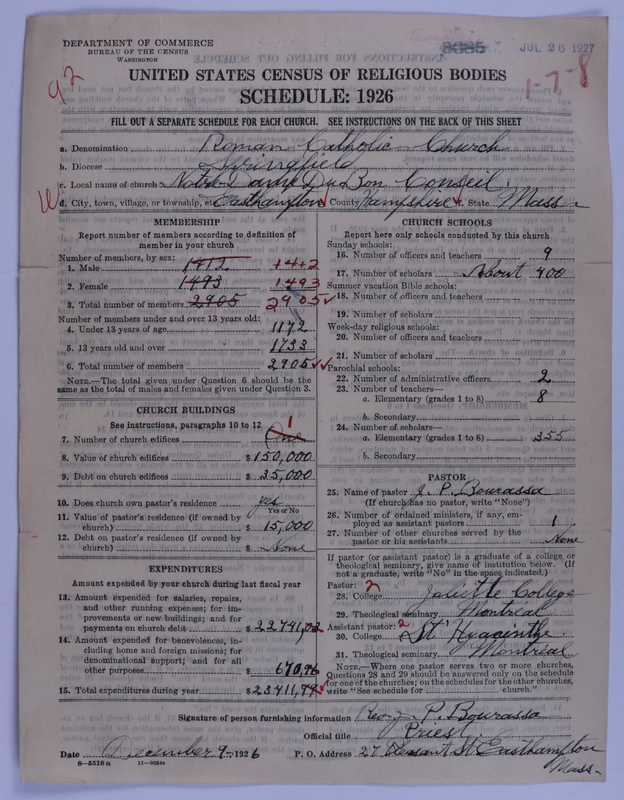 DEPARTMENT OF COMMERCE
BUREAU OF THE CENSUS
WASHINGTON
8085
JUL 26 1927
92
1-7-8
UNITED STATES CENSUS OF RELIGIOUS BODIES
SCHEDULE: 1926
FILL OUT A SEPARATE SCHEDULE FOR EACH CHURCH. SEE INSTRUCTIONS ON THE BACK OF THIS SHEET
a. Denomination Roman Catholic Church
b. Diocese Springfield
c. Local name of church Notre Dame Du Bon Conseil,
d. City, town, village, or township, etc. Easthampton County Hampshire State Mass.
MEMBERSHIP
Report number of members according to definition of
member in your church
Number of members, by sex:
1. Male 1412 1412
2. Female 1493 1493
3. Total number of members 2905 2905
Number of members under and over 13 years old:
4. Under 13 years of age 1172
5. 13 years old and over 1733
6. Total number of members 2905
NOTE.—The total given under Question 6 should be the
same as the total of males and females given under Question 3.
CHURCH BUILDINGS
See instructions, paragraphs 10 to 12
7. Number of church edifices One 1
8. Value of church edifices $150,000
9. Debt on church edifices $35,000
10. Does church own pastor's residence? yes
Yes or No
11. Value of pastor's residence (if owned by
church) $15,000
12. Debt on pastor's residence (if owned by
church) $None
EXPENDITURES
Amount expended by your church during last fiscal year
13. Amount expended for salaries, repairs,
and other running expenses; for im-
provements or new buildings; and for
payments on church debt $22741,
14. Amount expended for benevolences, in-
cluding home and foreign missions; for
denominational support; and for all
other purposes $670,
15. Total expenditures during year $23411,
CHURCH SCHOOLS
Report here only schools conducted by this church
Sunday schools:
16. Number of officers and teachers 9
17. Number of scholars About 400
Summer vacation Bible schools:
18. Number of officers and teachers
19. Number of scholars
Week-day religious schools:
20. Number of officers and teachers
21. Number of scholars
Parochial schools:
22. Number of administrative officers 2
23. Number of teachers—
a. Elementary (grades 1 to 8) 8
b. Secondary
24. Number of scholars—
a. Elementary (grades 1 to 8) 355
b. Secondary
PASTOR
25. Name of pastor J. P. Bourassa
(If church has no pastor, write "None")
26. Number of ordained ministers, if any, em-
ployed as assistant pastors 1
27. Number of other churches served by the
pastor or his assistants None
If pastor (or assistant pastor) is a graduate of a college or
theological seminary, give name of institution below. (If
not a graduate, write "No" in the space indicated.)
Pastor: 2
28. College Joliette College
29. Theological seminary Montreal
Assistant pastor: 2
30. College St Hyacinthe
31. Theological seminary Montreal
NOTE.—Where one pastor serves two or more churches,
Questions 28 and 29 should be answered only on the schedule
for one of the churches; on the schedules for the other churches,
write "See schedule for church."
Signature of person furnishing information Rev. J. P. Bourassa
Official title Priest
Date December 9, 1926 P. O. Address 27 Pleasant St Easthampton
Mass.
8—5518a 11—9054a